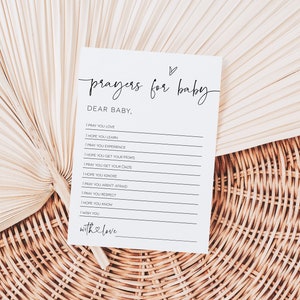 prayers for baby
DEAR BABY,
I PRAY YOU LOVE
I HOPE YOU LEARN
I PRAY YOU EXPERIENCE
I HOPE YOU GET YOUR MOM'S
I PRAY YOU GET YOUR DAD'S
I HOPE YOU IGNORE
I PRAY YOU AREN'T AFRAID
I PRAY YOU RESPECT
I HOPE YOU KNOW
I WISH YOU
with love